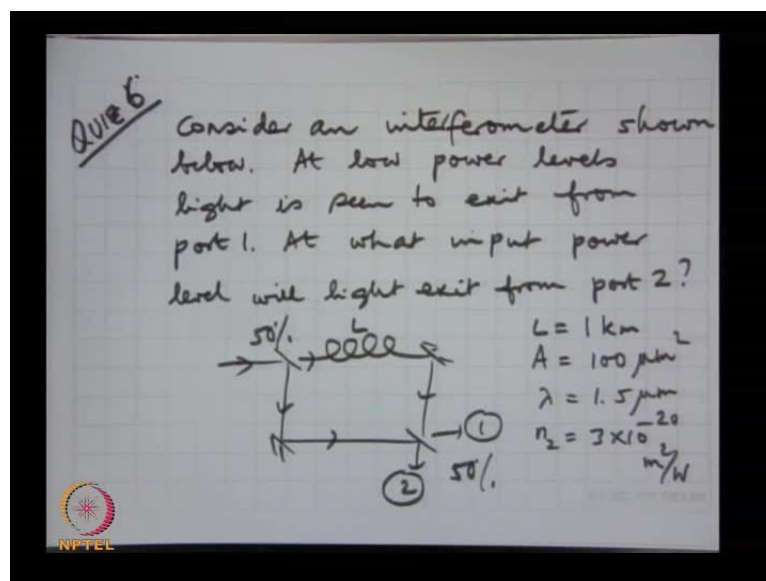 QUIZ 6
Consider an interferometer shown
below. At low power levels
light is seen to exit from
port 1. At what input power
level will light exit from port 2?
50%
L
L = 1 km
A = 100 μm²
λ = 1.5 μm
n₂ = 3 × 10⁻²⁰
m²/W
1
50%
2
NPTEL